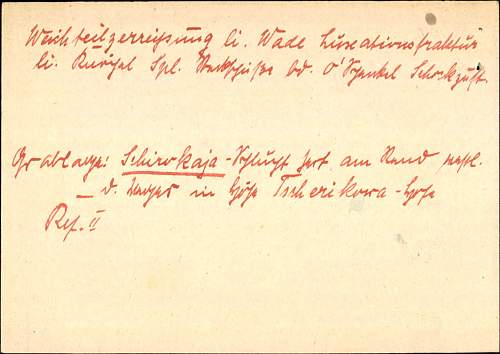 Weichteilzerreißung li. Wade Luxationsfraktur
li. Knöchel Spl. Steckschüsse bd. O'Schenkel Schockzust.
Grablage: Schirokaja-Schlucht hart am Rand westl.
d. Weges in Höhe Tscherikowa-Höhe
Ref. II